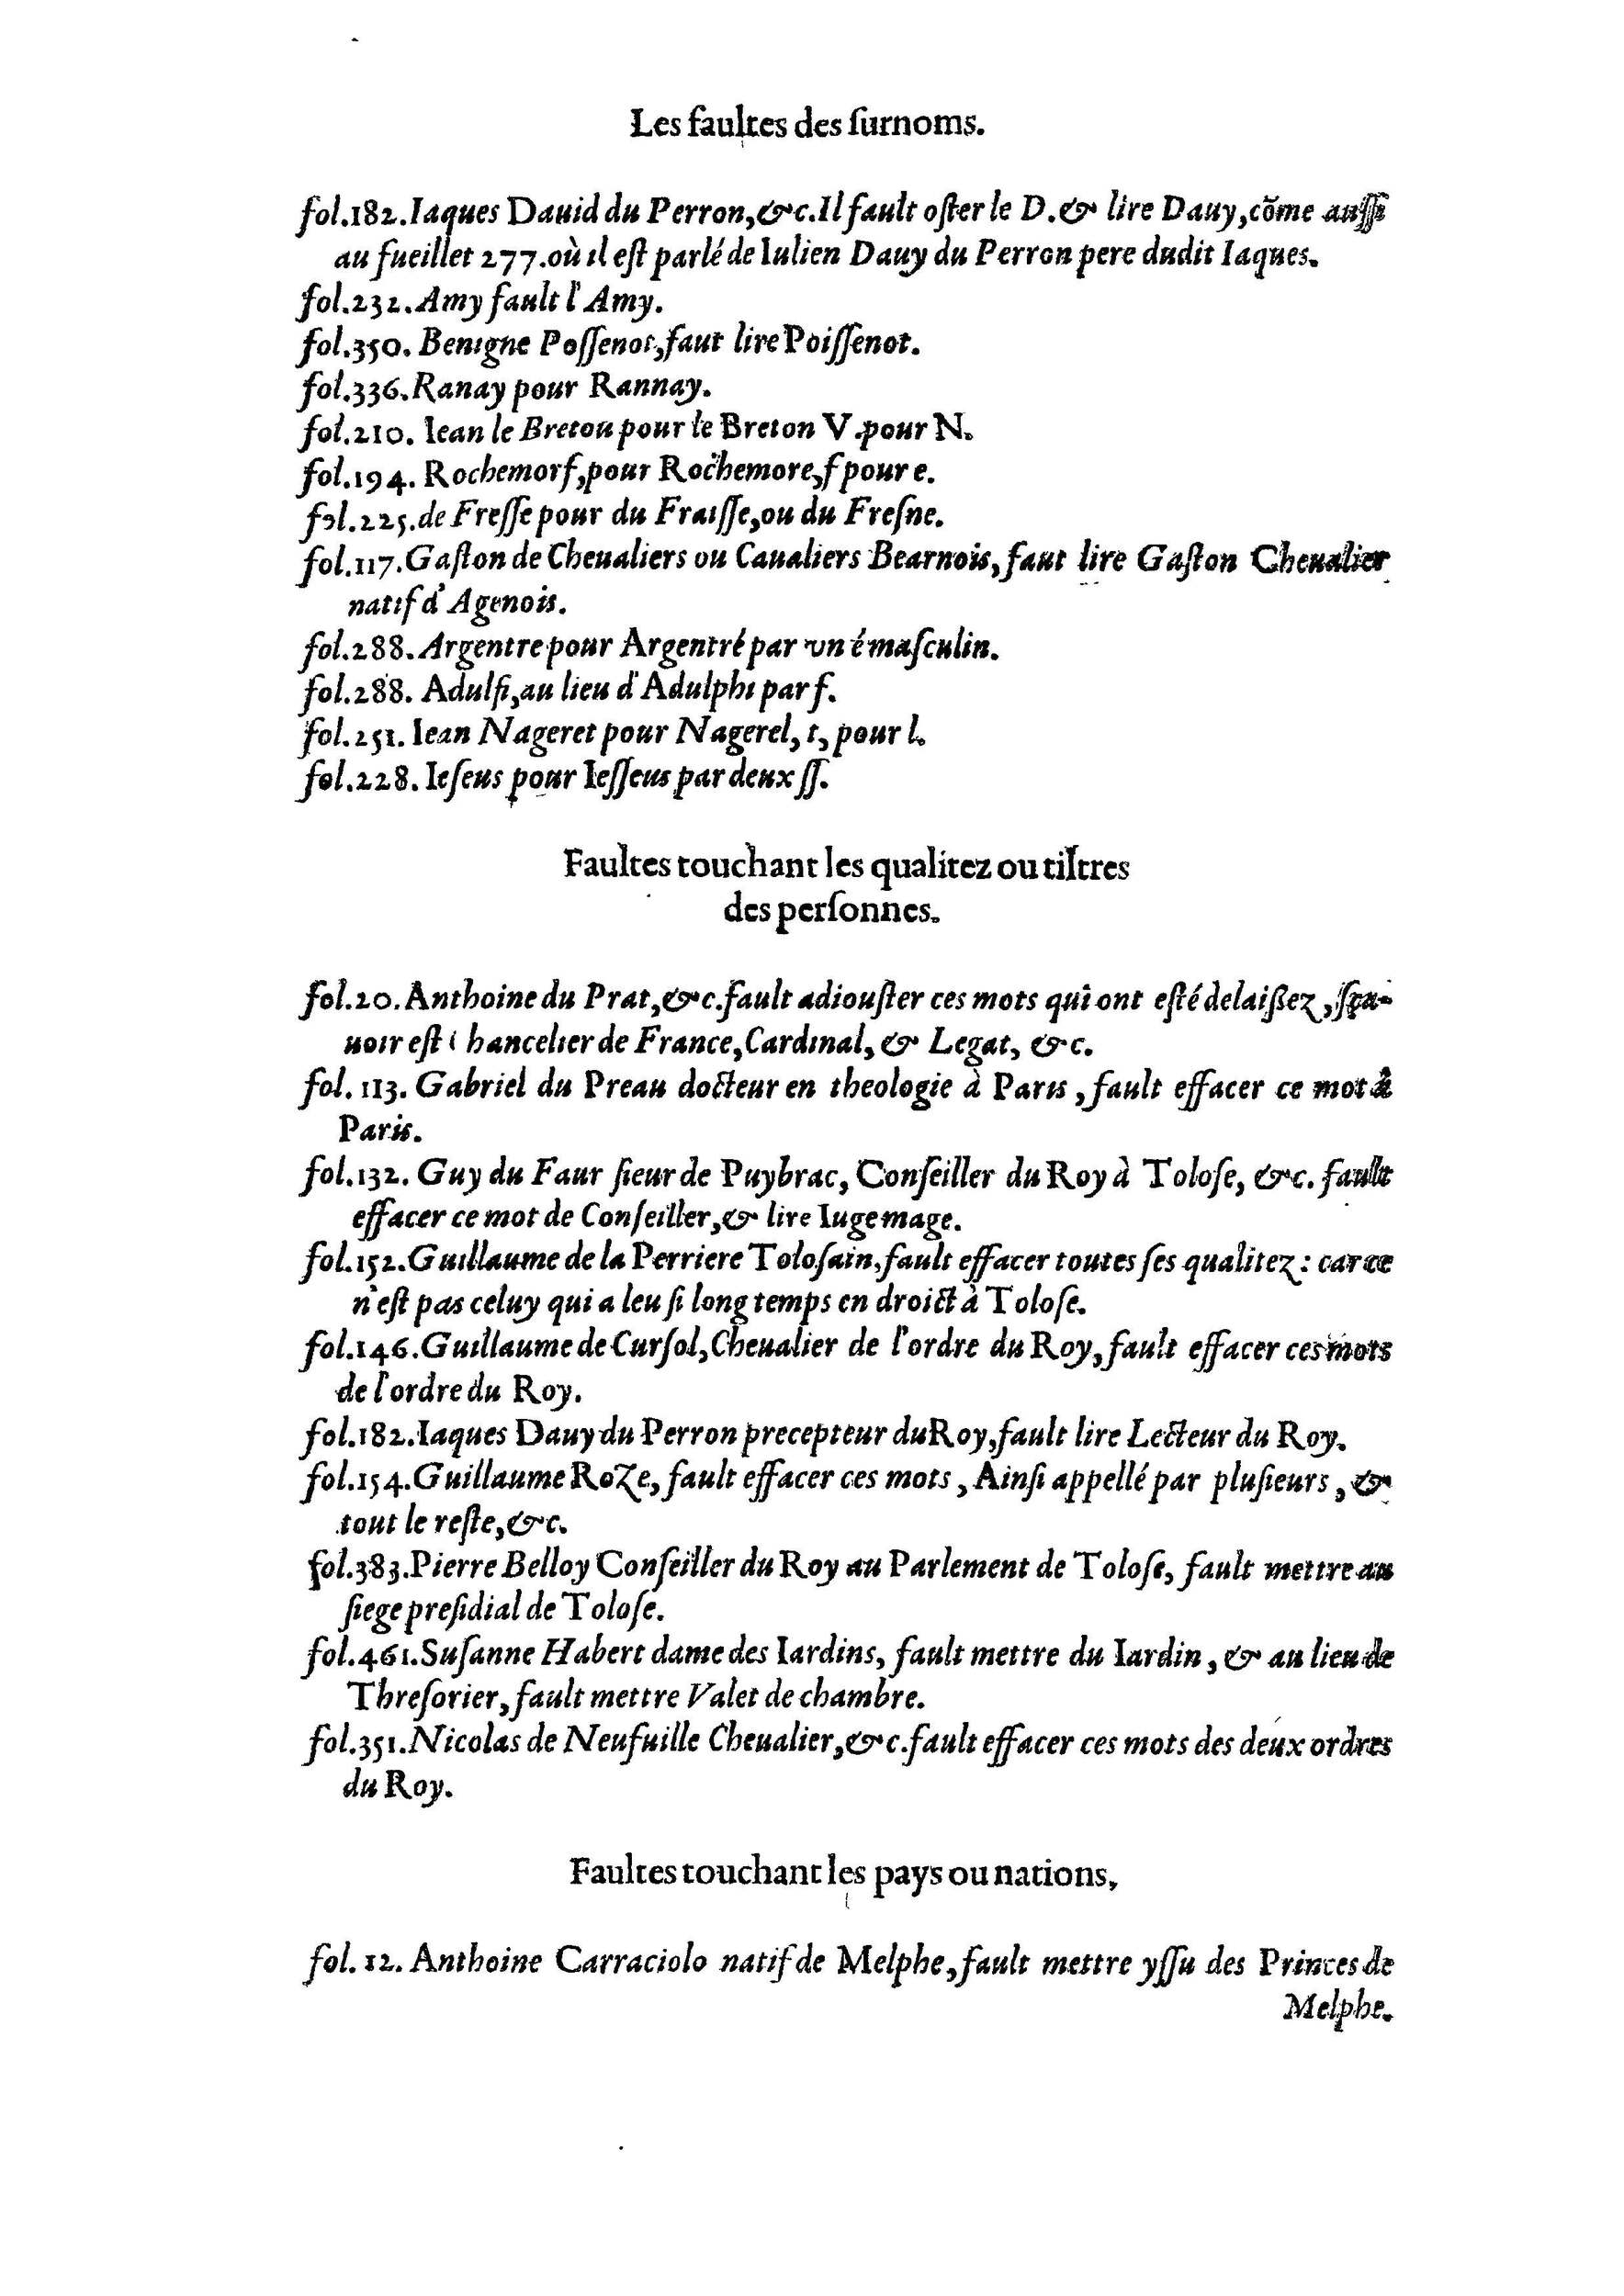 Les faultes des ſurnoms.
fol.182. Iaques Dauid du Perron, &c. Il fault oſter le D. & lire Dauy, cõme auſſi
au fueillet 277. où il eſt parlé de Iulien Dauy du Perron pere dudit Iaques.
fol.232. Amy fault l'Amy.
fol.350. Benigne Poſſenot, faut lire Poiſſenot.
fol.336. Ranay pour Rannay.
fol.210. Iean le Bretou pour le Breton V. pour N.
fol.194. Rochemorf, pour Rochemore, f pour e.
fol.225. de Freſſe pour du Fraiſſe, ou du Freſne.
fol.117. Gaſton de Cheualiers ou Caualiers Bearnois, faut lire Gaſton Cheualier
natif d'Agenois.
fol.288. Argentre pour Argentré par vn é maſculin.
fol.288. Adulfi, au lieu d'Adulphi par f.
fol.251. Iean Nageret pour Nagerel, t, pour l.
fol.228. Ieſeus pour Ieſſeus par deux ſſ.
Faultes touchant les qualitez ou tiltres
des perſonnes.
fol.20. Anthoine du Prat, &c. fault adiouſter ces mots qui ont eſté delaißez, ſça-
uoir eſt Chancelier de France, Cardinal, & Legat, &c.
fol. 113. Gabriel du Preau docteur en theologie à Paris, fault effacer ce mot à
Paris.
fol.132. Guy du Faur ſieur de Puybrac, Conſeiller du Roy à Toloſe, &c. fault
effacer ce mot de Conſeiller, & lire Iuge mage.
fol.152. Guillaume de la Perriere Toloſain, fault effacer toutes ſes qualitez: car ce
n'eſt pas celuy qui a leu ſi long temps en droict à Toloſe.
fol.146. Guillaume de Curſol, Cheualier de l'ordre du Roy, fault effacer ces mots
de l'ordre du Roy.
fol.182. Iaques Dauy du Perron precepteur du Roy, fault lire Lecteur du Roy.
fol.154. Guillaume RoZe, fault effacer ces mots, Ainſi appellé par pluſieurs, &
tout le reſte, &c.
fol.383. Pierre Belloy Conſeiller du Roy au Parlement de Toloſe, fault mettre au
ſiege preſidial de Toloſe.
fol.461. Suſanne Habert dame des Iardins, fault mettre du Iardin, & au lieu de
Threſorier, fault mettre Valet de chambre.
fol.351. Nicolas de Neufuille Cheualier, &c. fault effacer ces mots des deux ordres
du Roy.
Faultes touchant les pays ou nations,
fol. 12. Anthoine Carraciolo natif de Melphe, fault mettre yſſu des Princes de
Melphe.